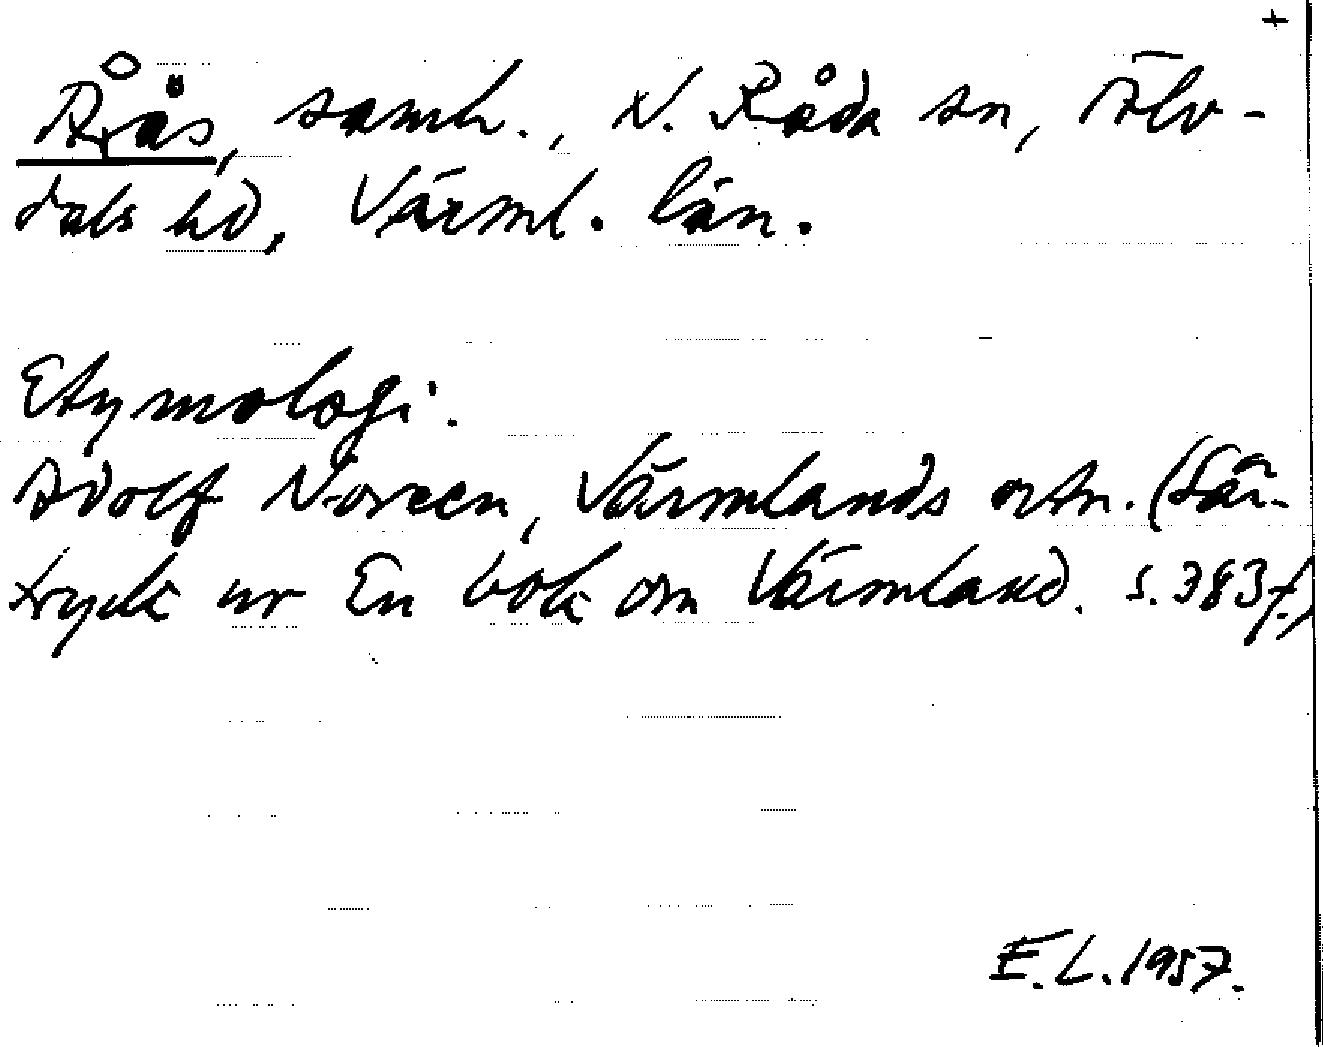 +
Årås, samh., N. Råda sn, Älv-
dals hd, Värml. län.
Etymologi.
Adolf Noreen, Värmlands ortn. (Sär-
tryck ur En bok om Värmland. s. 383 f.)
E.L. 1957.